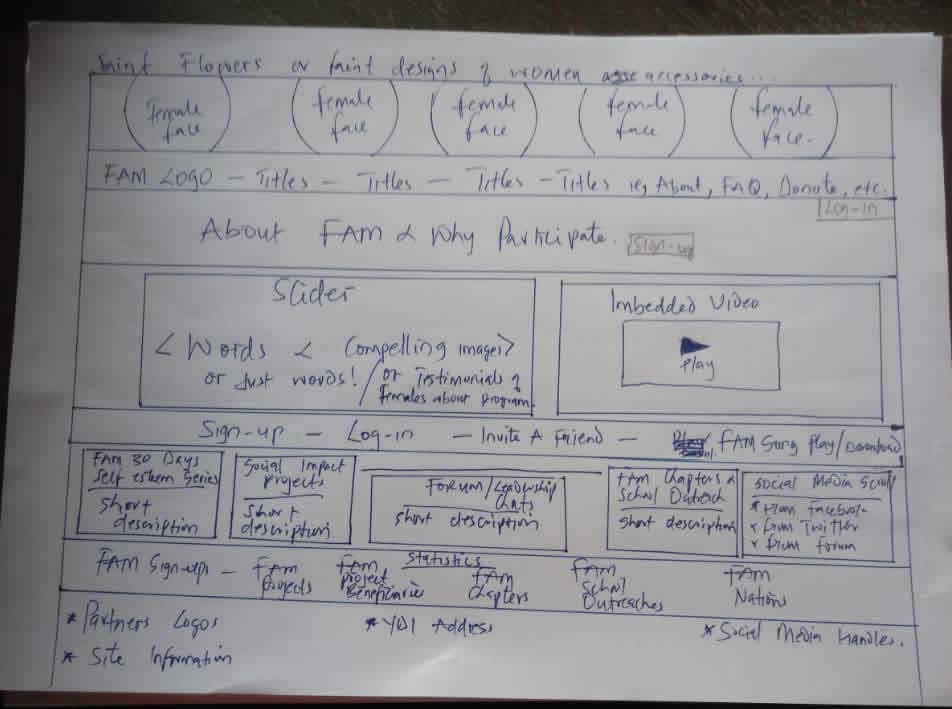 Faint Flowers or faint designs of women accessories...
female face
female face
female face
female face
female face.
FAM LOGO – Titles – Titles – Titles – Titles ie, About, FAQ, Donate, etc.
Log-in
About FAM & Why Participate.
Sign-up
Slider
< Words < Compelling images>
or Just words! / or Testimonials of
females about program.
Imbedded Video
Play
Sign-up – Log-in – Invite A Friend – FAM Song Play/Download
FAM 30 Days
Self esteem Series
Short
description
Social Impact
Projects
Short
description
Forum/Leadership
Chats
Short description
FAM Chapters &
School Outreach
Short description
Social Media Scroll
* From Facebook
* From Twitter
* From Forum
Statistics
FAM Sign-ups –
FAM
Projects
FAM
Project
Beneficiaries
FAM
Chapters
FAM
School
Outreaches
FAM
Nations
* Partners Logos
* YDI Address
* Social Media Handles.
* Site Information